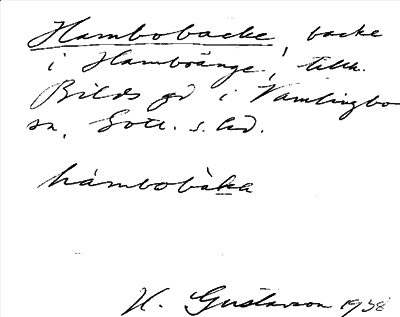 Hambobacke, backe
i Hamboänge, tillh.
Bilds gd i Vamlingbo
sn, Gotl. s. hd.
hámbobàka
H. Gustavson 1938